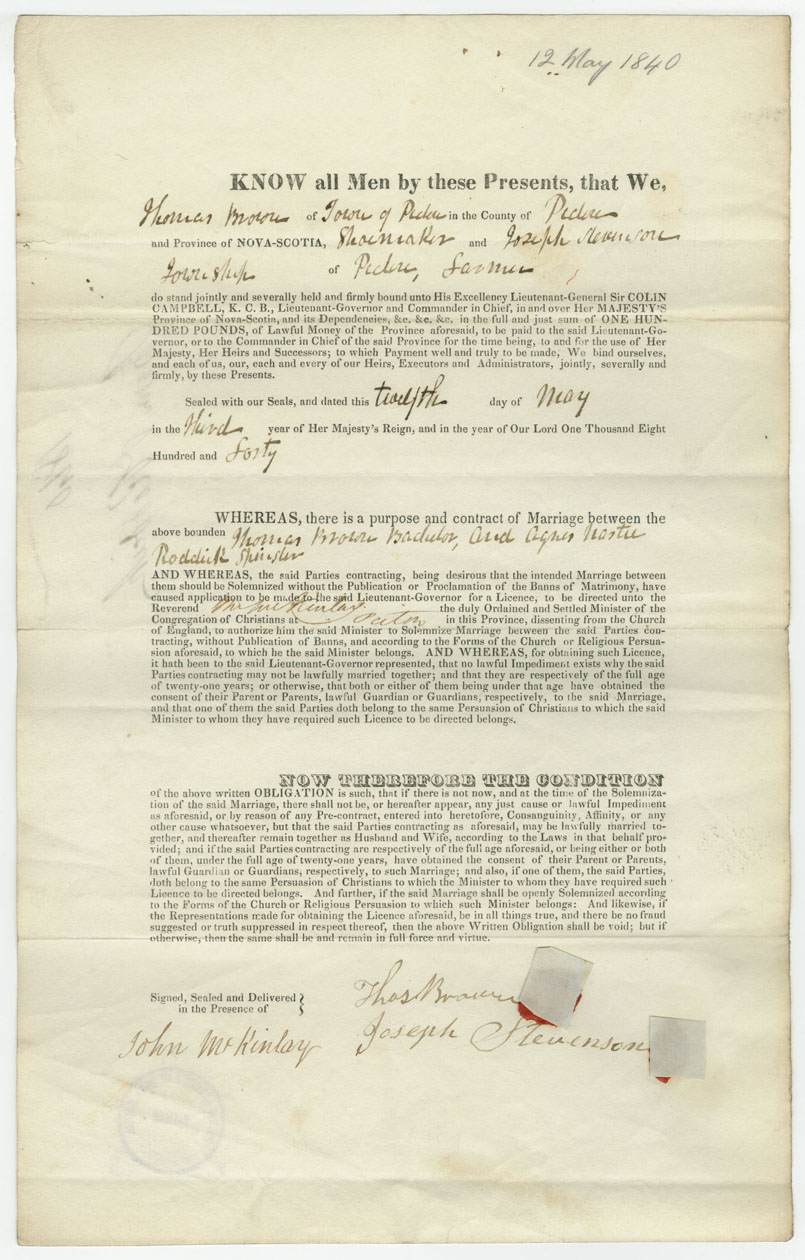 12 May 1840
KNOW all Men by these Presents, that We,
Thomas Brown of Town of Pictou in the County of Pictou
and Province of NOVA-SCOTIA, Shoemaker and Joseph Stevenson
Township of Pictou, Farmer
do stand jointly and severally held and firmly bound unto His Excellency Lieutenant-General Sir COLIN
CAMPBELL, K. C. B., Lieutenant-Governor and Commander in Chief, in and over Her MAJESTY'S
Province of Nova-Scotia, and its Dependencies, &c. &c. &c. in the full and just sum of ONE HUN-
DRED POUNDS, of Lawful Money of the Province aforesaid, to be paid to the said Lieutenant-Go-
vernor, or to the Commander in Chief of the said Province for the time being, to and for the use of Her
Majesty, Her Heirs and Successors; to which Payment well and truly to be made, We bind ourselves,
and each of us, our, each and every of our Heirs, Executors and Administrators, jointly, severally and
firmly, by these Presents.
Sealed with our Seals, and dated this twelfth day of May
in the third year of Her Majesty's Reign, and in the year of Our Lord One Thousand Eight
Hundred and Forty
WHEREAS, there is a purpose and contract of Marriage between the
above bounden Thomas Brown Bachelor, and Agnes Hastie
Roddick Spinster
AND WHEREAS, the said Parties contracting, being desirous that the intended Marriage between
them should be Solemnized without the Publication or Proclamation of the Banns of Matrimony, have
caused application to be made to the said Lieutenant-Governor for a Licence, to be directed unto the
Reverend McKinlay the duly Ordained and Settled Minister of the
Congregation of Christians at Pictou in this Province, dissenting from the Church
of England, to authorize him the said Minister to Solemnize Marriage between the said Parties con-
tracting, without Publication of Banns, and according to the Forms of the Church or Religious Persua-
sion aforesaid, to which he the said Minister belongs. AND WHEREAS, for obtaining such Licence,
it hath been to the said Lieutenant-Governor represented, that no lawful Impediment exists why the said
Parties contracting may not be lawfully married together; and that they are respectively of the full age
of twenty-one years; or otherwise, that both or either of them being under that age have obtained the
consent of their Parent or Parents, lawful Guardian or Guardians, respectively, to the said Marriage,
and that one of them the said Parties doth belong to the same Persuasion of Christians to which the said
Minister to whom they have required such Licence to be directed belongs.
NOW THEREFORE THE CONDITION
of the above written OBLIGATION is such, that if there is not now, and at the time of the Solemniza-
tion of the said Marriage, there shall not be, or hereafter appear, any just cause or lawful Impediment
as aforesaid, or by reason of any Pre-contract, entered into heretofore, Consanguinity, Affinity, or any
other cause whatsoever, but that the said Parties contracting as aforesaid, may be lawfully married to-
gether, and thereafter remain together as Husband and Wife, according to the Laws in that behalf pro-
vided; and if the said Parties contracting are respectively of the full age aforesaid, or being either or both
of them, under the full age of twenty-one years, have obtained the consent of their Parent or Parents,
lawful Guardian or Guardians, respectively, to such Marriage; and also, if one of them, the said Parties,
doth belong to the same Persuasion of Christians to which the Minister to whom they have required such
Licence to be directed belongs. And further, if the said Marriage shall be openly Solemnized according
to the Forms of the Church or Religious Persuasion to which such Minister belongs: And likewise, if
the Representations made for obtaining the Licence aforesaid, be in all things true, and there be no fraud
suggested or truth suppressed in respect thereof, then the above Written Obligation shall be void; but if
otherwise, then the same shall be and remain in full force and virtue.
Signed, Sealed and Delivered
in the Presence of
Thos Brown
John McKinlay
Joseph Stevenson